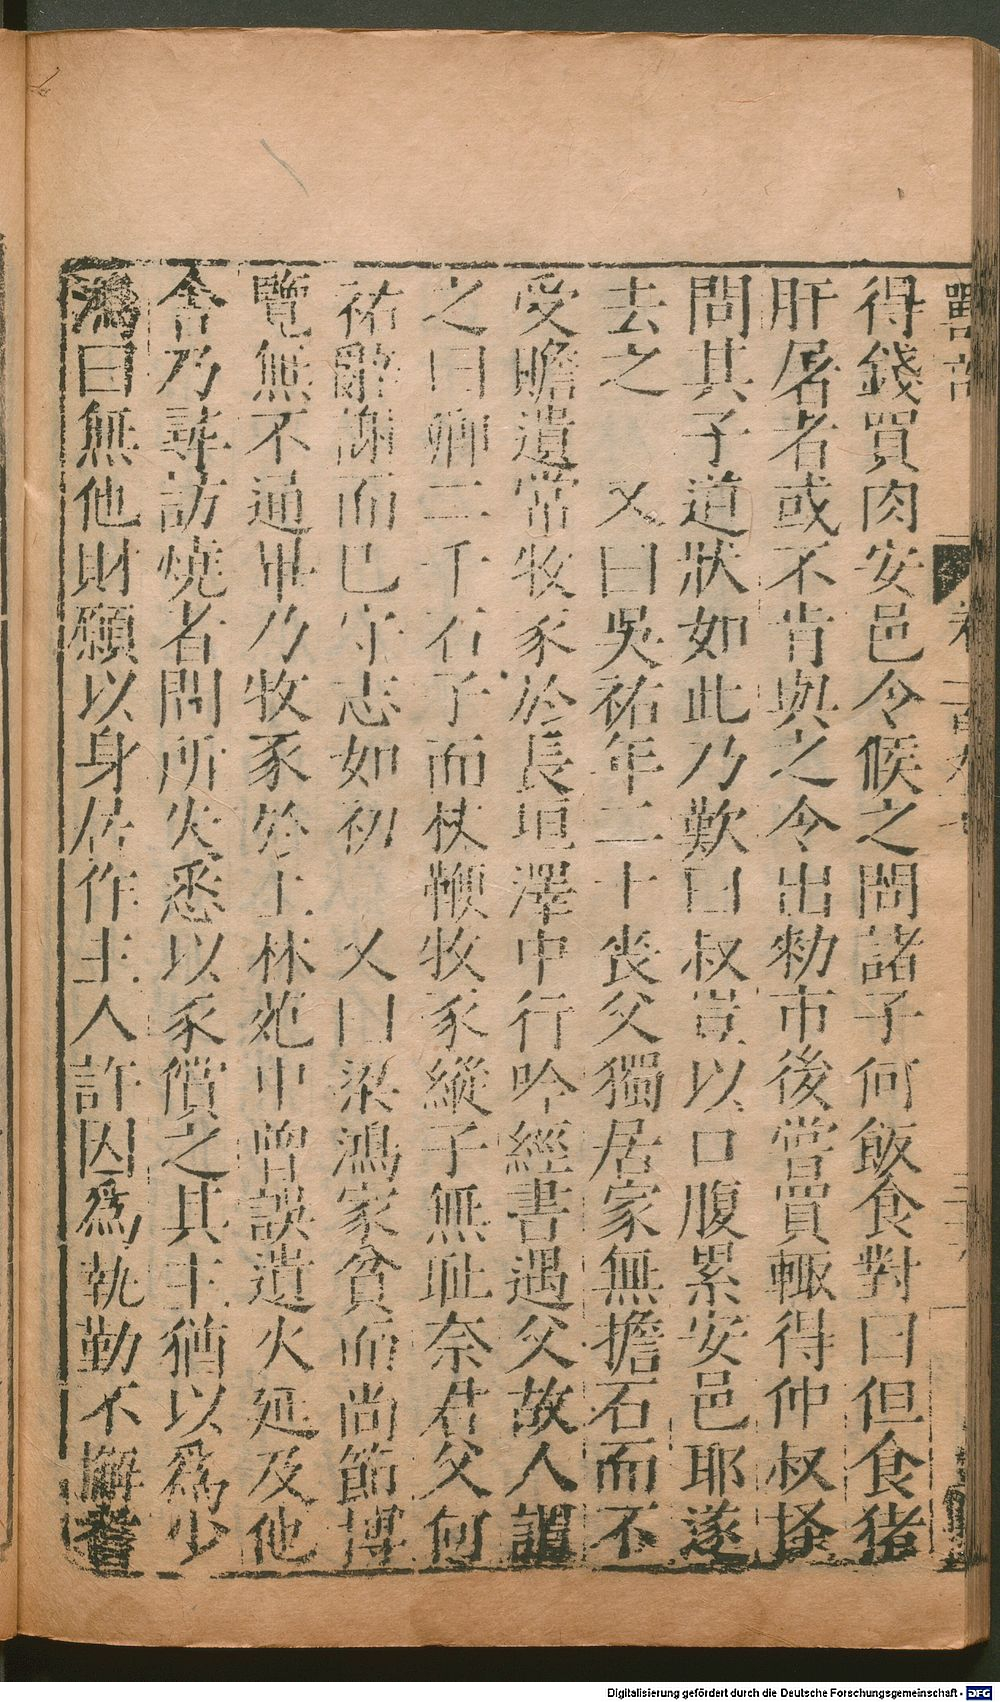 得錢買肉安邑令候之問諸子何飯食對曰但食猪
肝屠者或不肯與之令出勑市後嘗買輙得仲叔恠
問其子道狀如此乃歎曰叔豈以口腹累安邑耶遂
去之　又曰吳祐年二十喪父獨居家無擔石而不
受贍遺常牧豕於長垣澤中行吟經書遇父故人謂
之曰卿二千石子而杖鞭牧豕縱子無耻奈君父何
祐辭謝而已守志如初　又曰梁鴻家貧而尚節博
覽無不通畢乃牧豕於上林苑中曾誤遺火延及他
舍乃尋訪燒者問所失悉以豕償之其主猶以爲少
鴻曰無他財願以身居作主人許因爲執勤不懈耆
獸部
Digitalisierung gefördert durch die Deutsche Forschungsgemeinschaft - DFG